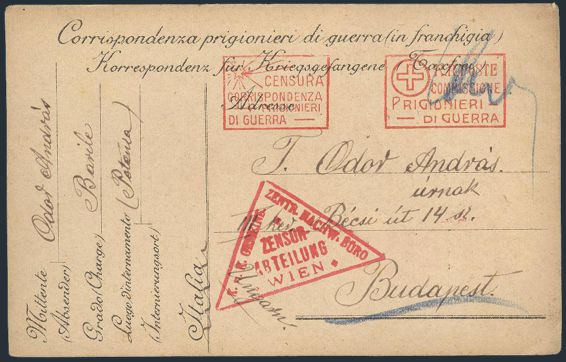 Corrispondenza prigionieri di guerra (in franchigia)
Korrespondenz für Kriegsgefangene Taxfrei
CENSURA
CORRISPONDENZA
PRIGIONIERI
DI GUERRA
Adresse
COMMISSIONE
PRIGIONIERI
DI GUERRA
T. Odor András
úrnak
Bécsi út 14 sz.
Budapest.
Ungarn.
K. u. K. GEMEINS. ZENTR. NACHW. BÜRO
ZENSUR-
ABTEILUNG
WIEN
Mittente Odor András
Absender
Grado (Charge) Barile
Luogo d'internamento (Potenza)
Internierungsort
Italia